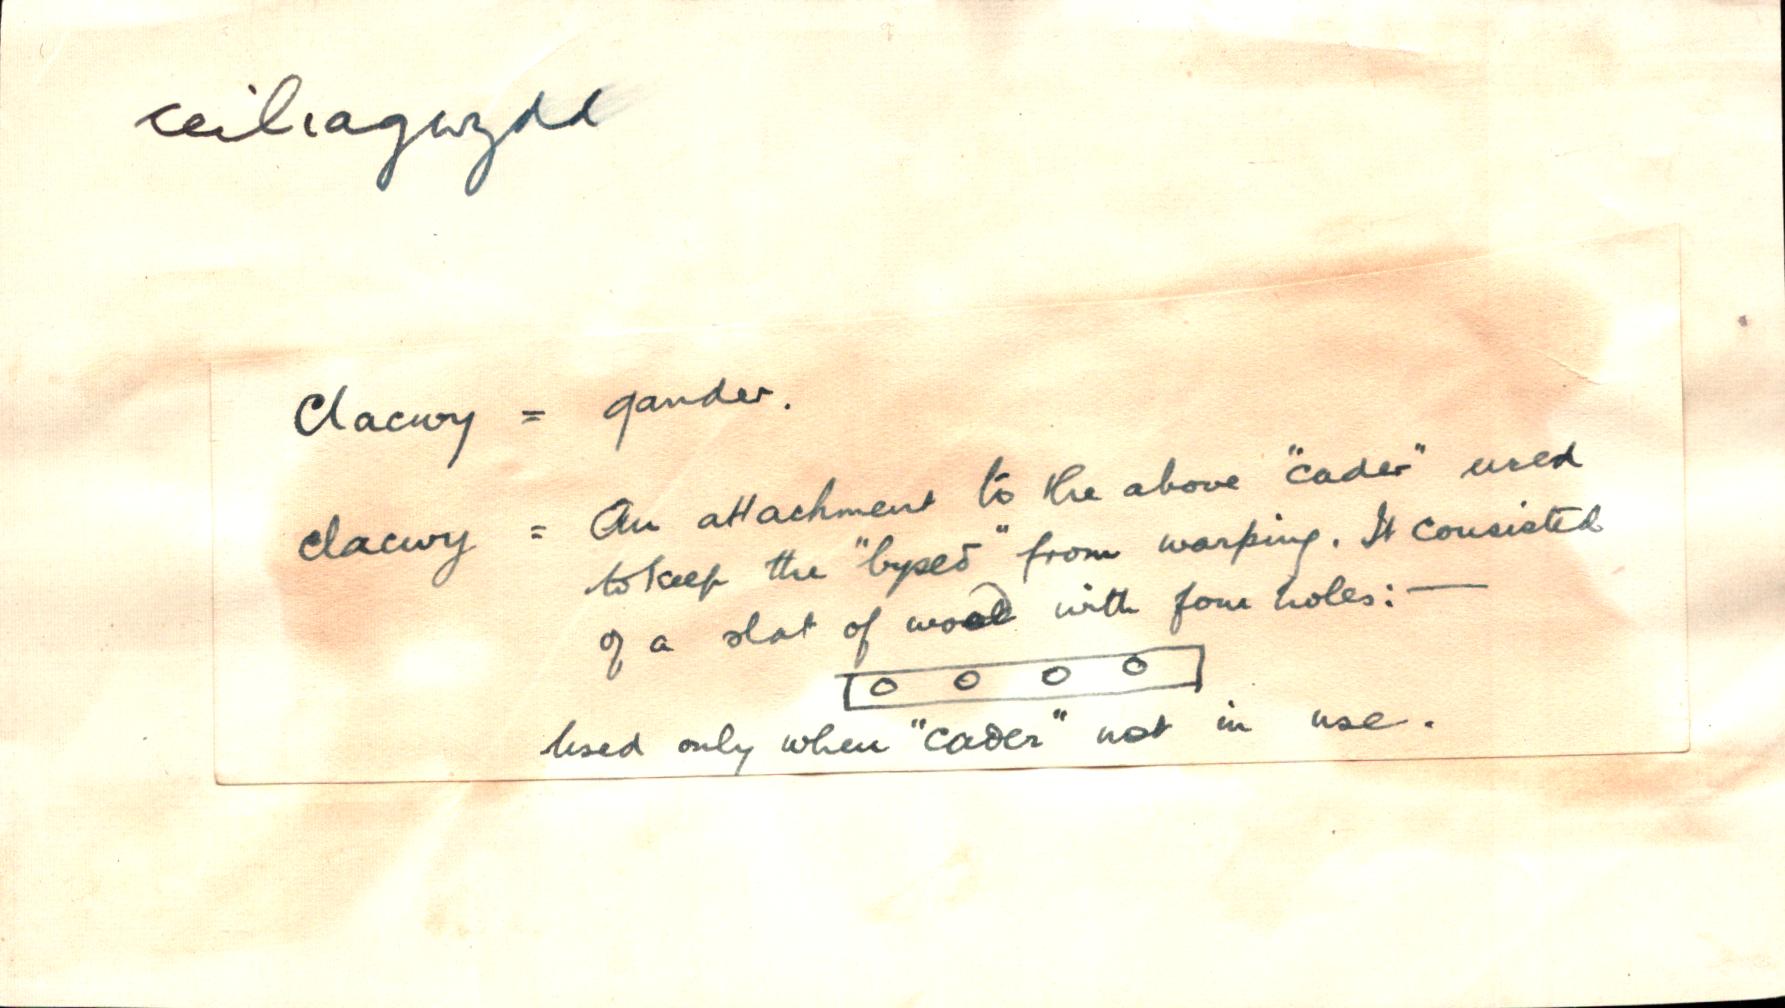 ceiliagwydd
Clacwy = gander.
clacwy = An attachment to the above "cader" used
to keep the "bysedd" from warping. It consisted
of a slat of wood with four holes:—
Used only when "cader" not in use.